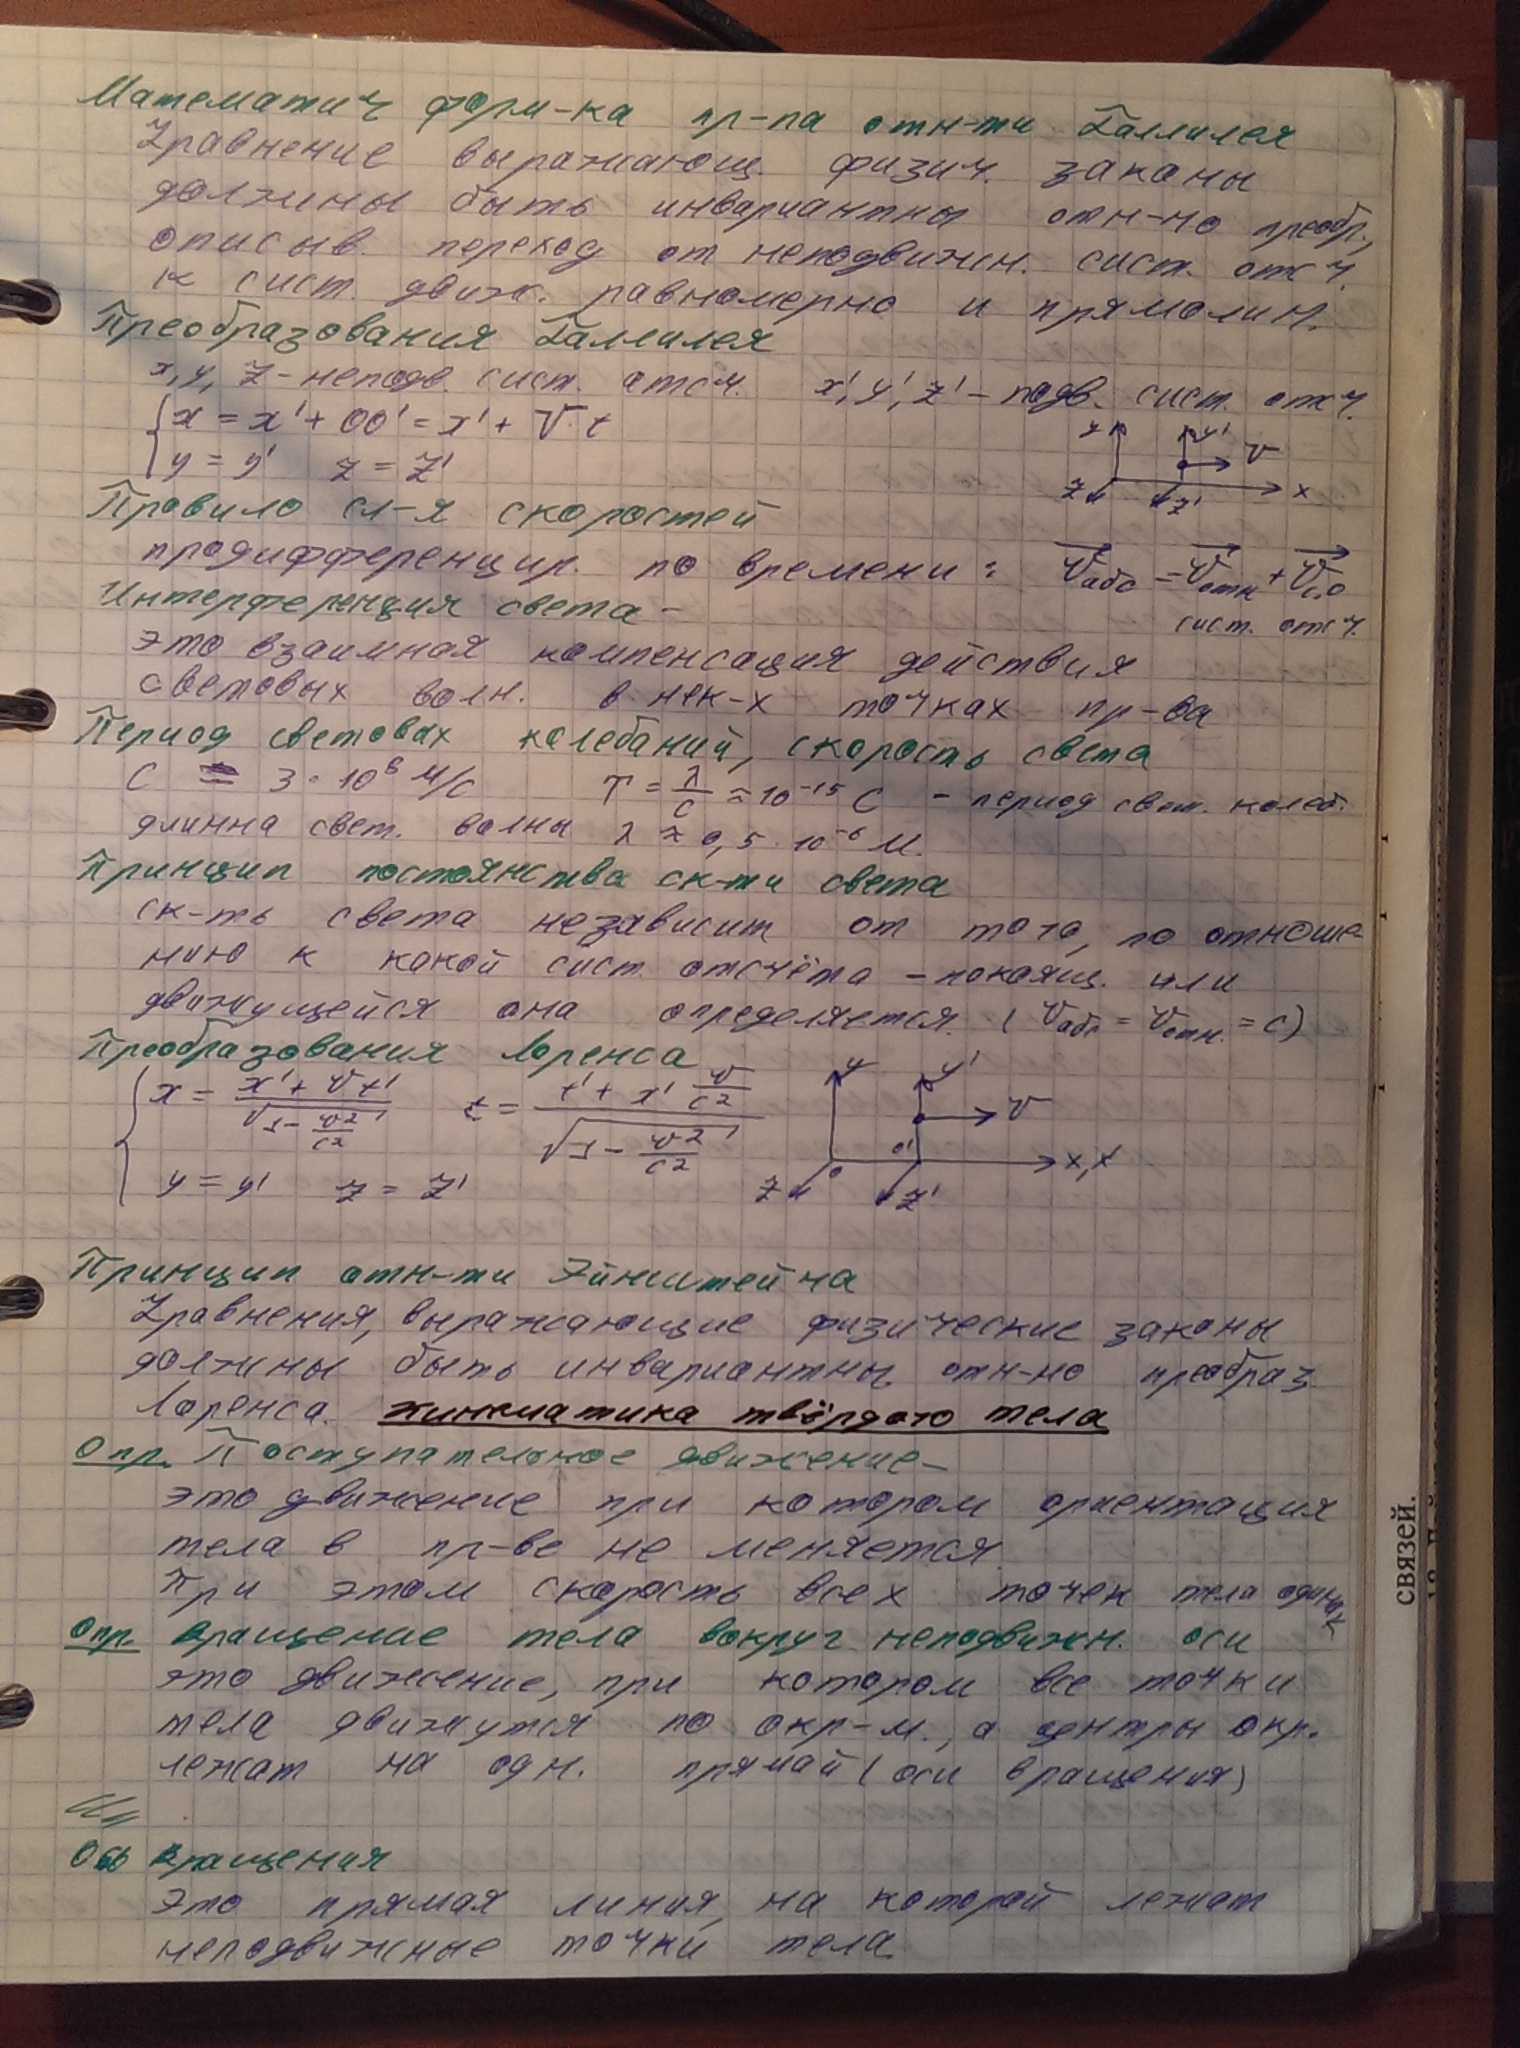 Математич форм-ка пр-па отн-ти Галлилея
Уравнение выражающ. физич. законы
должны быть инвариантны отн-но преобр.,
описыв. переход от неподвижн. сист. отсч.
к сист. движ. равномерно и прямолин.
Преобразования Галлилея
x, y, z - неподв. сист. отсч. x', y', z' - подв. сист. отсч.
x = x' + OO' = x' + V·t
y = y' z = z'
y y' V
z z' x
Правило сл-я скоростей
продифференцир. по времени: Vабс = Vотн + Vс.о
сист. отсч.
Интерференция света -
это взаимная компенсация действия
световых волн. в нек-х точках пр-ва
Период световых колебаний, скорость света
C = 3·10⁸ м/с T = λ/c ≈ 10⁻¹⁵ С - период свет. колеб.
длинна свет. волны λ ≈ 0,5·10⁻⁶ м.
Принцип постоянства ск-ти света
ск-ть света независит от того, по отноше
нию к какой сист. отсчёта - покоящ. или
движущейся она определяется. (Vабс = Vотн. = c)
Преобразования Лоренса
x = (x' + Vt')/√(1 - v²/c²) t = (t' + x' v/c²)/√(1 - v²/c²)
y = y' z = z'
y y' V
o o' x, x'
z z'
Принцип отн-ти Эйнштейна
Уравнения, выражающие физические законы
должны быть инвариантны отн-но преобраз
Лоренса. Кинематика твёрдого тела
Опр. Поступательное движение -
это движение при котором ориентация
тела в пр-ве не меняется.
При этом скорость всех точек тела одинак
Опр. Вращение тела вокруг неподвижн. оси
это движение, при котором все точки
тела движутся по окр-м., а центры окр.
лежат на одн. прямой (оси вращения)
Ось вращения
Это прямая линия, на которой лежат
неподвижные точки тела
связей.